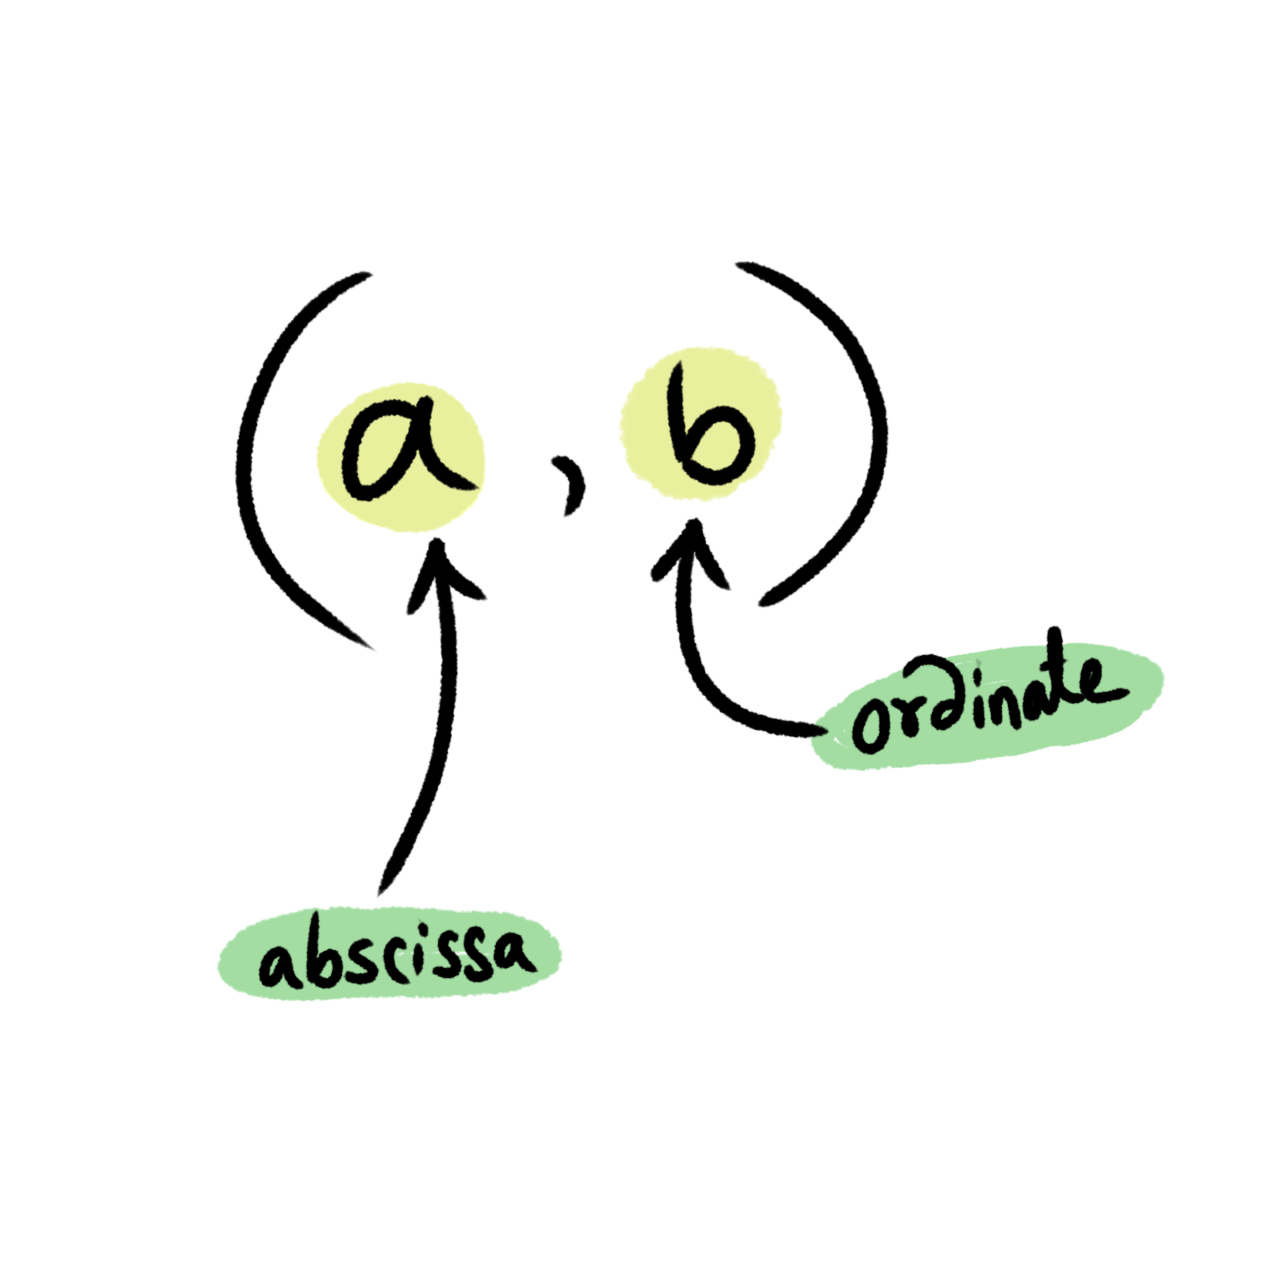 (a, b)
ordinate
abscissa